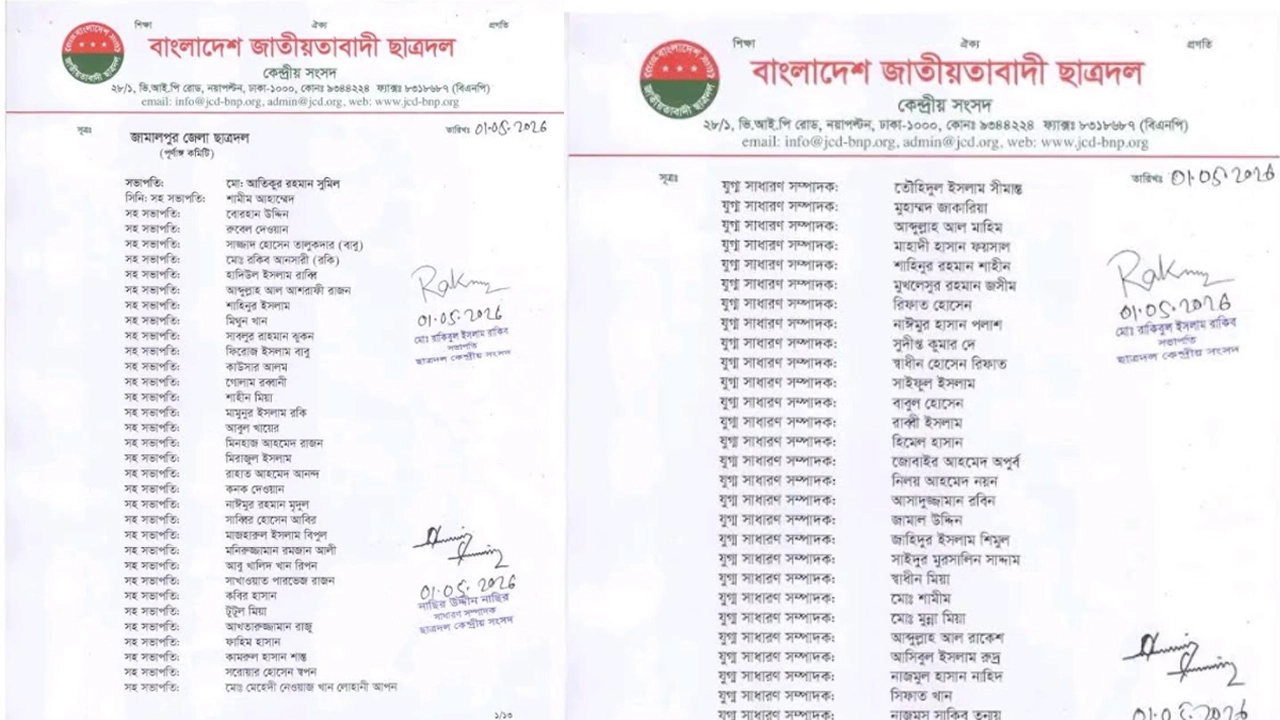 শিক্ষা ঐক্য প্রগতি
বাংলাদেশ জাতীয়তাবাদী ছাত্রদল
কেন্দ্রীয় সংসদ
২৮/১, ভি.আই.পি রোড, নয়াপল্টন, ঢাকা-১০০০, ফোনঃ ৯৩৪৪২২৪ ফ্যাক্সঃ ৮৩১৮৬৮৭ (বিএনপি)
email: info@jcd-bnp.org, admin@jcd.org, web: www.jcd-bnp.org
সূত্রঃ তারিখঃ 01.05.2026
জামালপুর জেলা ছাত্রদল
(পূর্ণাঙ্গ কমিটি)
সভাপতি: মো: আতিকুর রহমান সুমিল
সিনি: সহ সভাপতি: শামীম আহাম্মেদ
সহ সভাপতি: বোরহান উদ্দিন
সহ সভাপতি: রুবেল দেওয়ান
সহ সভাপতি: সাজ্জাদ হোসেন তালুকদার (বাবু)
সহ সভাপতি: মোঃ রকিব আনসারী (রকি)
সহ সভাপতি: হাদিউল ইসলাম রাব্বি
সহ সভাপতি: আব্দুল্লাহ আল আশরাফী রাজন
সহ সভাপতি: শাহিনুর ইসলাম
সহ সভাপতি: মিথুন খান
সহ সভাপতি: সাবলুর রাহমান ঝুকন
সহ সভাপতি: ফিরোজ ইসলাম বাবু
সহ সভাপতি: কাউসার আলম
সহ সভাপতি: গোলাম রব্বানী
সহ সভাপতি: শাহীন মিয়া
সহ সভাপতি: মামুনুর ইসলাম রকি
সহ সভাপতি: আবুল খায়ের
সহ সভাপতি: মিনহাজ আহমেদ রাজন
সহ সভাপতি: মিরাজুল ইসলাম
সহ সভাপতি: রাহাত আহমেদ আনন্দ
সহ সভাপতি: কনক দেওয়ান
সহ সভাপতি: নাঈমুর রহমান মৃদুল
সহ সভাপতি: সাব্বির হোসেন আবির
সহ সভাপতি: মাজহারুল ইসলাম বিপুল
সহ সভাপতি: মনিরুজ্জামান রমজান আলী
সহ সভাপতি: আবু খালিদ খান রিপন
সহ সভাপতি: সাখাওয়াত পারভেজ রাজন
সহ সভাপতি: কবির হাসান
সহ সভাপতি: টুটুল মিয়া
সহ সভাপতি: আখতারুজ্জামান রাজু
সহ সভাপতি: ফাহিম হাসান
সহ সভাপতি: কামরুল হাসান শান্ত
সহ সভাপতি: সরোয়ার হোসেন স্বপন
সহ সভাপতি: মোঃ মেহেদী নেওয়াজ খান লোহানী আপন
01.05.2026
মোঃ রাকিবুল ইসলাম রাকিব
সভাপতি
ছাত্রদল কেন্দ্রীয় সংসদ
01.05.2026
নাছির উদ্দীন নাছির
সাধারণ সম্পাদক
ছাত্রদল কেন্দ্রীয় সংসদ
১/১৩
শিক্ষা ঐক্য প্রগতি
বাংলাদেশ জাতীয়তাবাদী ছাত্রদল
কেন্দ্রীয় সংসদ
২৮/১, ভি.আই.পি রোড, নয়াপল্টন, ঢাকা-১০০০, ফোনঃ ৯৩৪৪২২৪ ফ্যাক্সঃ ৮৩১৮৬৮৭ (বিএনপি)
email: info@jcd-bnp.org, admin@jcd.org, web: www.jcd-bnp.org
সূত্রঃ তারিখঃ 01.05.2026
যুগ্ম সাধারণ সম্পাদক: তৌহিদুল ইসলাম সীমান্ত
যুগ্ম সাধারণ সম্পাদক: মুহাম্মদ জাকারিয়া
যুগ্ম সাধারণ সম্পাদক: আব্দুল্লাহ আল মাহিম
যুগ্ম সাধারণ সম্পাদক: মাহাদী হাসান ফয়সাল
যুগ্ম সাধারণ সম্পাদক: শাহিনুর রহমান শাহীন
যুগ্ম সাধারণ সম্পাদক: মুখলেসুর রহমান জসীম
যুগ্ম সাধারণ সম্পাদক: রিফাত হোসেন
যুগ্ম সাধারণ সম্পাদক: নাঈমুর হাসান পলাশ
যুগ্ম সাধারণ সম্পাদক: সুদীপ্ত কুমার দে
যুগ্ম সাধারণ সম্পাদক: স্বাধীন হোসেন রিফাত
যুগ্ম সাধারণ সম্পাদক: সাইফুল ইসলাম
যুগ্ম সাধারণ সম্পাদক: বাবুল হোসেন
যুগ্ম সাধারণ সম্পাদক: রাব্বী ইসলাম
যুগ্ম সাধারণ সম্পাদক: হিমেল হাসান
যুগ্ম সাধারণ সম্পাদক: জোবাইর আহমেদ অপূর্ব
যুগ্ম সাধারণ সম্পাদক: নিলয় আহমেদ নয়ন
যুগ্ম সাধারণ সম্পাদক: আসাদুজ্জামান রবিন
যুগ্ম সাধারণ সম্পাদক: জামাল উদ্দিন
যুগ্ম সাধারণ সম্পাদক: জাহিদুর ইসলাম শিমুল
যুগ্ম সাধারণ সম্পাদক: সাইদুর মুরসালিন সাদ্দাম
যুগ্ম সাধারণ সম্পাদক: স্বাধীন মিয়া
যুগ্ম সাধারণ সম্পাদক: মোঃ শামীম
যুগ্ম সাধারণ সম্পাদক: মোঃ মুন্না মিয়া
যুগ্ম সাধারণ সম্পাদক: আব্দুল্লাহ আল রাকেশ
যুগ্ম সাধারণ সম্পাদক: আসিবুল ইসলাম রুদ্র
যুগ্ম সাধারণ সম্পাদক: নাজমুল হাসান নাহিদ
যুগ্ম সাধারণ সম্পাদক: সিফাত খান
যুগ্ম সাধারণ সম্পাদক: নাজমুস সাকিব তন্ময়
01.05.2026
মোঃ রাকিবুল ইসলাম রাকিব
সভাপতি
ছাত্রদল কেন্দ্রীয় সংসদ
01.05.2026